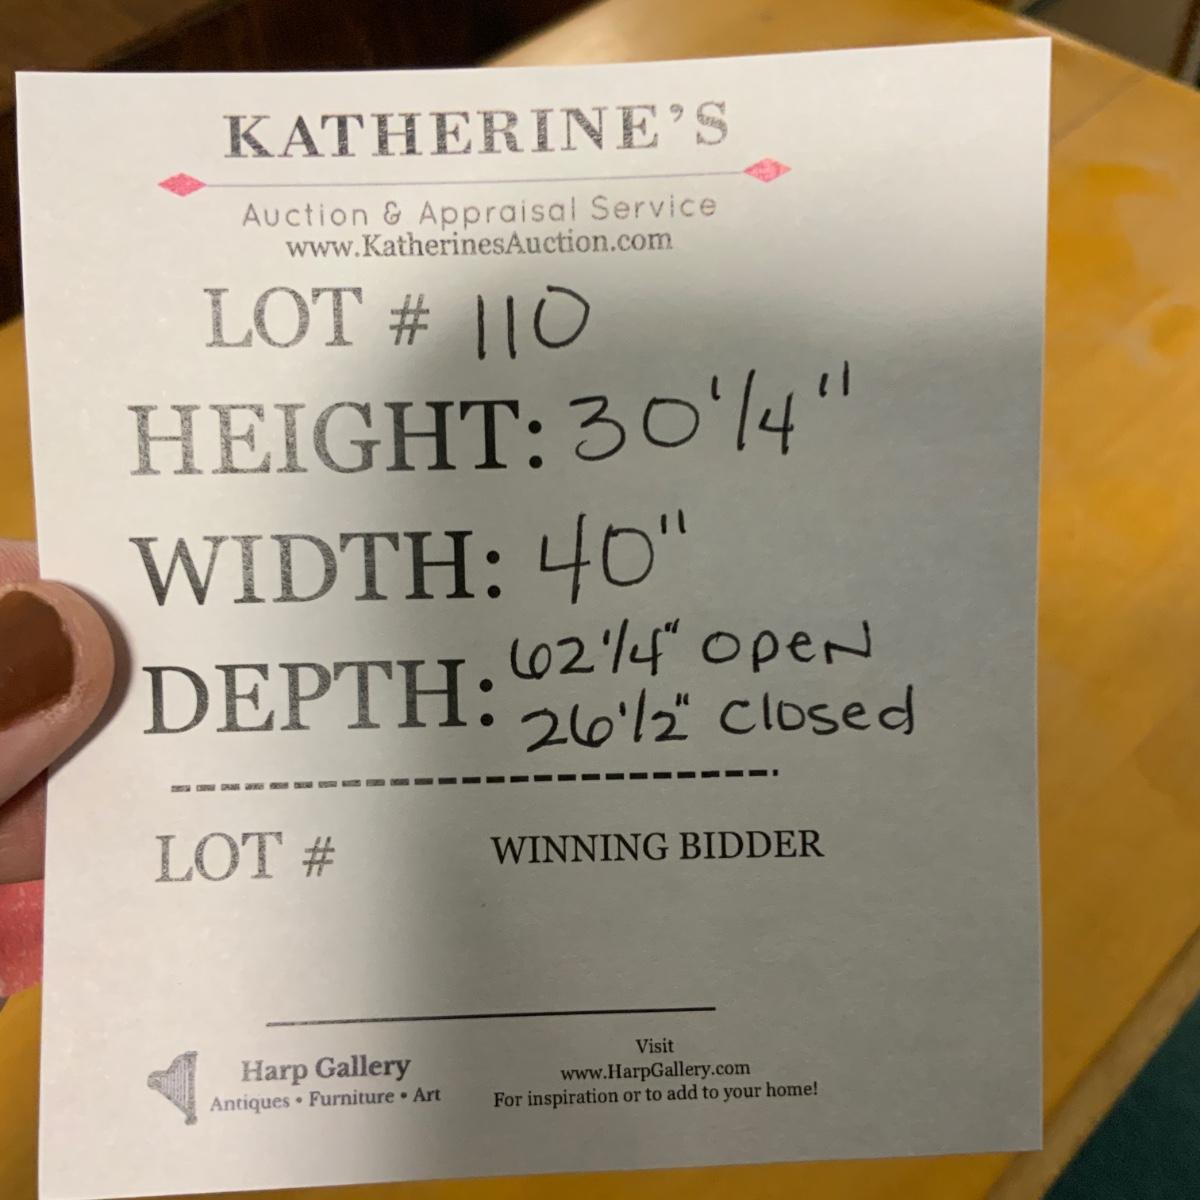 KATHERINE'S
Auction & Appraisal Service
www.KatherinesAuction.com
LOT # 110
HEIGHT: 30 1/4"
WIDTH: 40"
DEPTH: 62 1/4" OPEN
26 1/2" Closed
LOT # WINNING BIDDER
Harp Gallery
Antiques • Furniture • Art
Visit
www.HarpGallery.com
For inspiration or to add to your home!